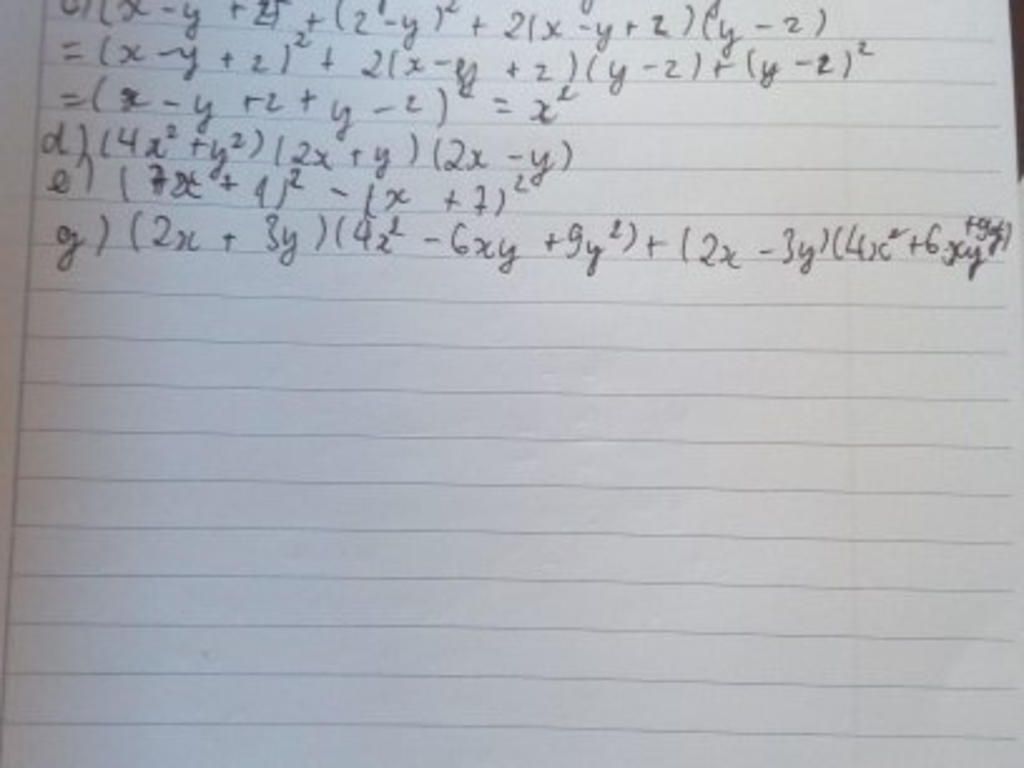 (x - y + z)² + (z - y)² + 2(x - y + z)(y - z)
= (x - y + z)² + 2(x - y + z)(y - z) + (y - z)²
= (x - y + z + y - z)² = x²
d) (4x² + y²)(2x + y)(2x - y)
e) (7x + 1)² - (x + 7)²
g) (2x + 3y)(4x² - 6xy + 9y²) + (2x - 3y)(4x² + 6xy + 9y²)